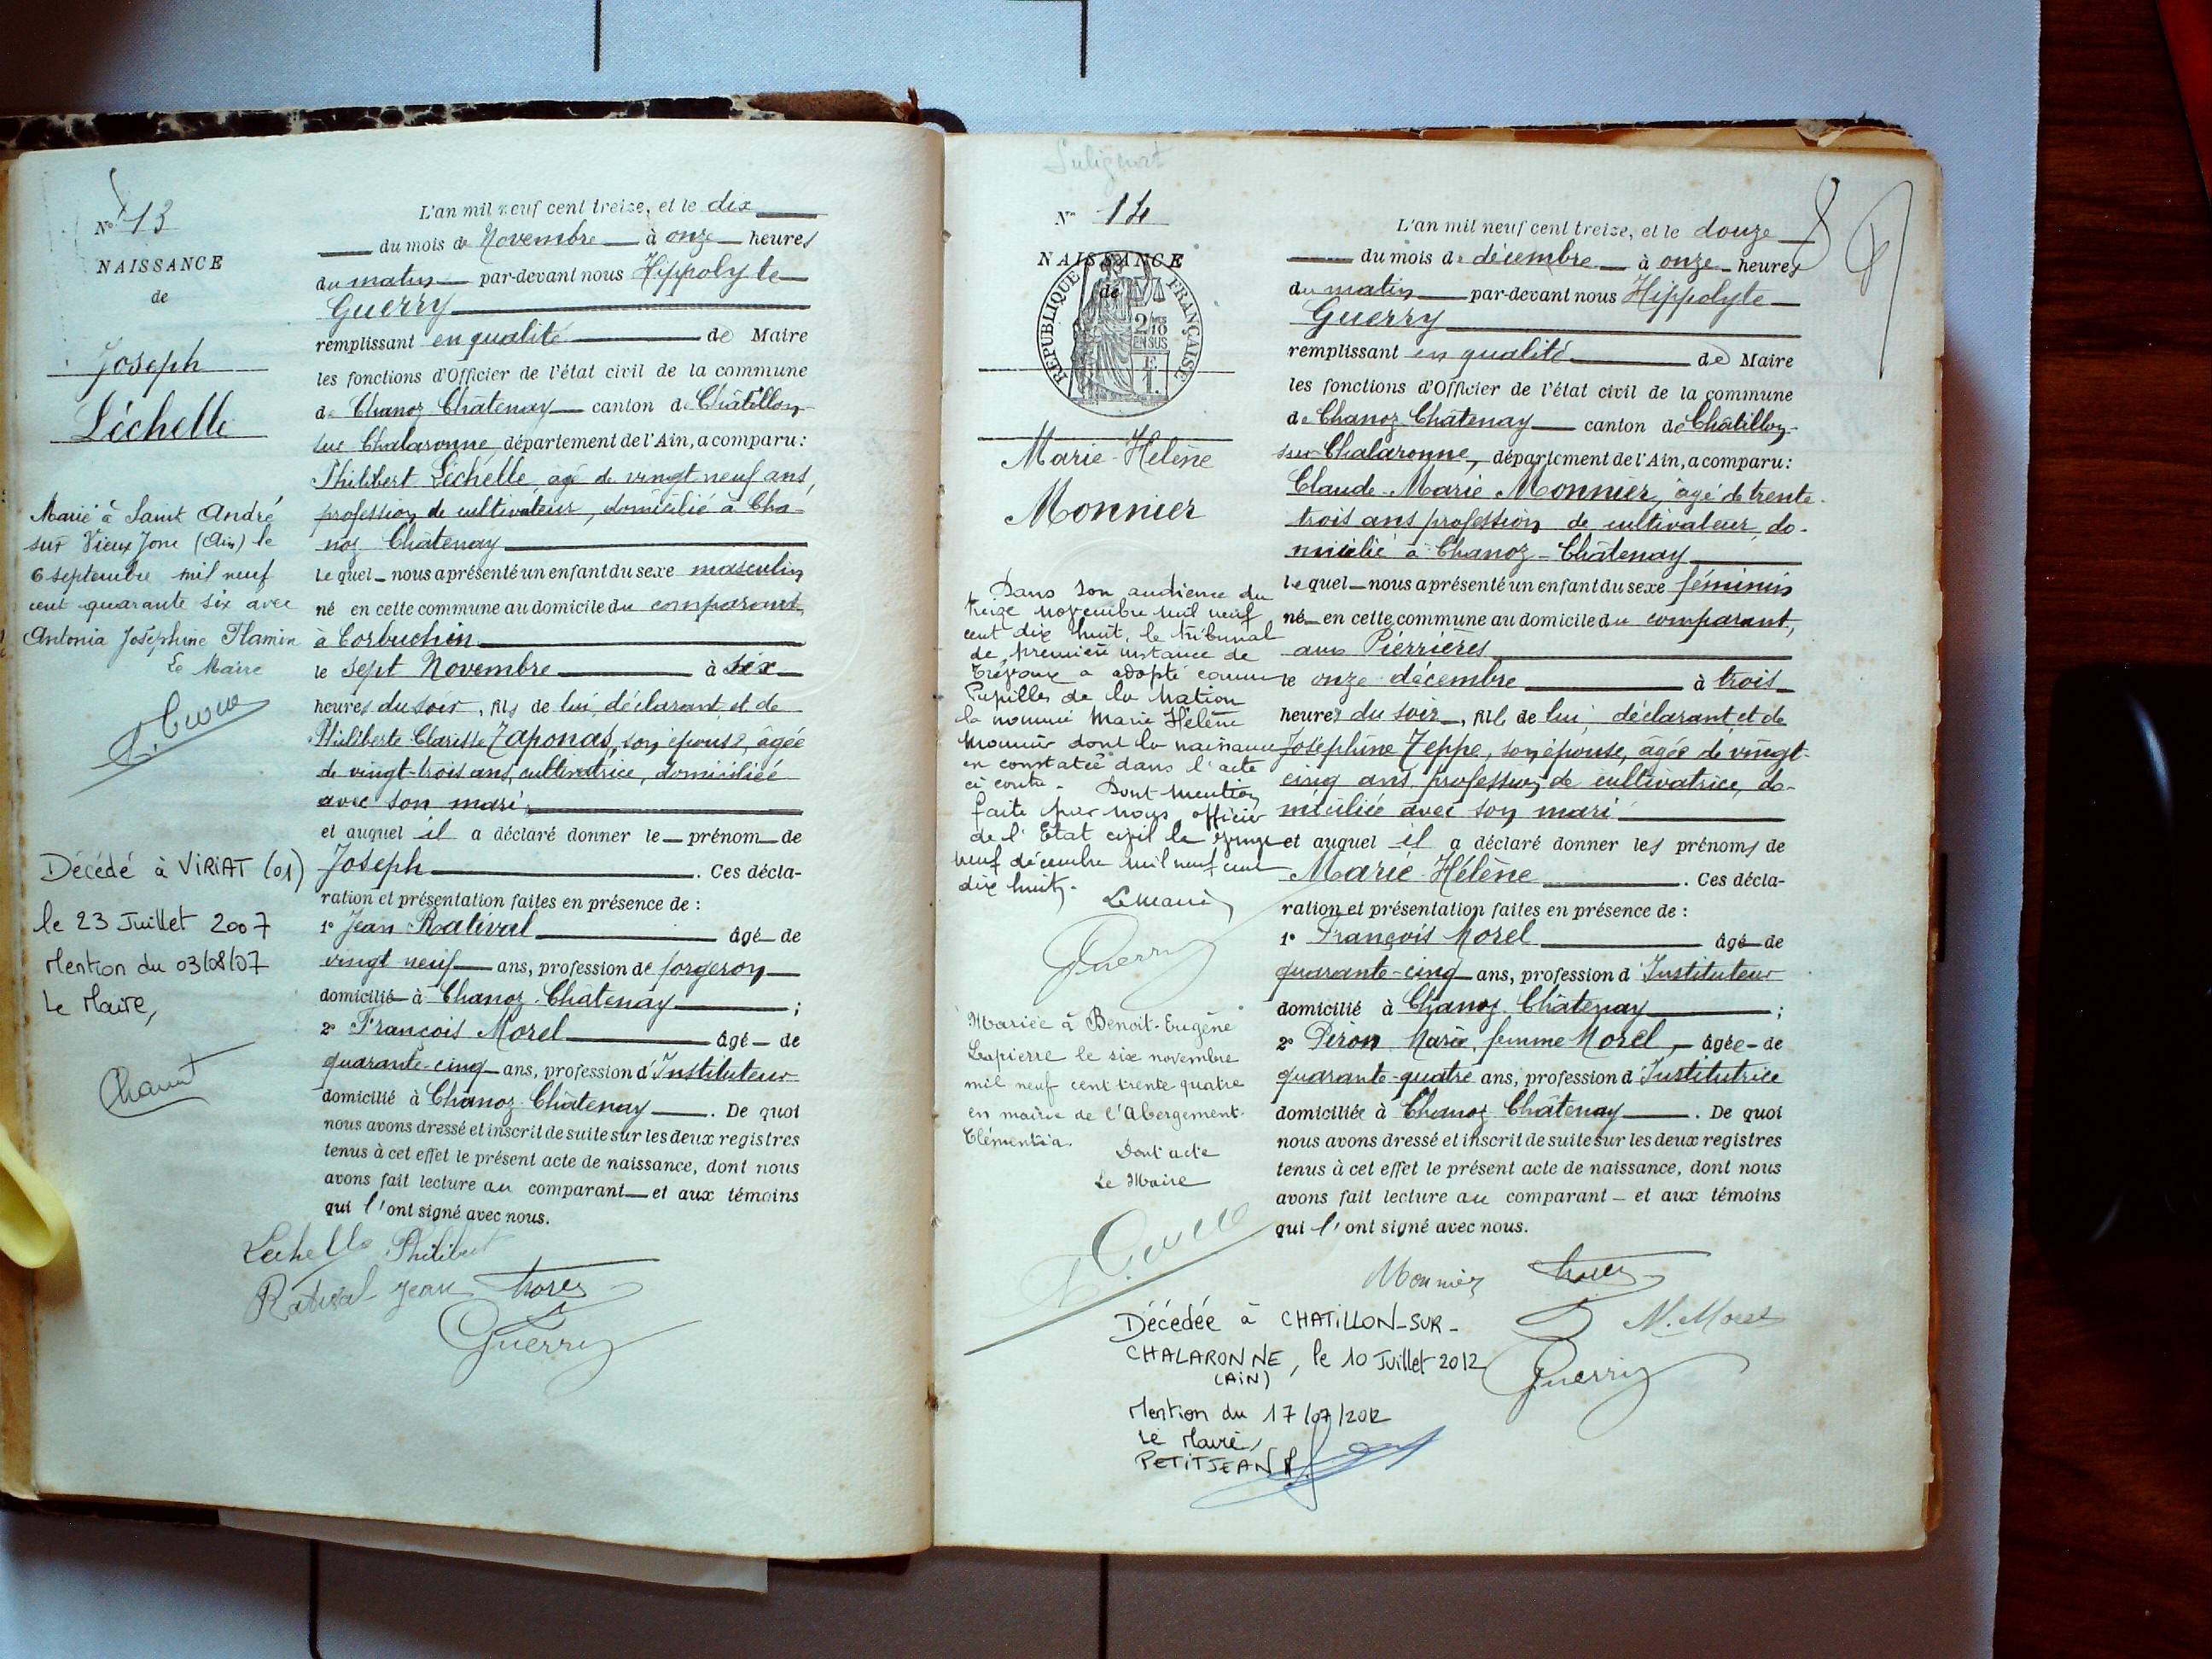 N° 13
NAISSANCE
de
Joseph
Léchelle
Marié à Saint André
sur Vieux Jonc (Ain) le
6 septembre mil neuf
cent quarante six avec
Antonia Joséphine Flamin
Le Maire
Décédé à VIRIAT (01)
le 23 Juillet 2007
Mention du 03/08/07
Le Maire,
L'an mil neuf cent treize, et le dix
du mois de Novembre à onze heures
du matin par-devant nous Hippolyte
Guerry
remplissant en qualité de Maire
les fonctions d'Officier de l'état civil de la commune
de Chanoz-Châtenay canton de Châtillon-
sur Chalaronne, département de l'Ain, a comparu:
Philibert Léchelle, âgé de vingt neuf ans,
profession de cultivateur, domicilié à Cha-
noz Châtenay
lequel nous a présenté un enfant du sexe masculin
né en cette commune au domicile du comparant,
à Corbuchin
le sept Novembre à six
heures du soir, fils de lui déclarant et de
Philiberte Clarisse Zaponas, son épouse, âgée
de vingt-trois ans, cultivatrice, domiciliée
avec son mari
et auquel il a déclaré donner le prénom de
Joseph. Ces décla-
ration et présentation faites en présence de :
1° Jean Ratival âgé de
vingt neuf ans, profession de forgeron
domicilié à Chanoz-Châtenay ;
2° François Morel âgé de
quarante-cinq ans, profession d'Instituteur
domicilié à Chanoz-Châtenay. De quoi
nous avons dressé et inscrit de suite sur les deux registres
tenus à cet effet le présent acte de naissance, dont nous
avons fait lecture au comparant et aux témoins
qui l'ont signé avec nous.
Lechelle Philibert
Ratival Jean Morel
Guerry
N° 14
NAISSANCE
de
RÉPUBLIQUE FRANÇAISE
2/10
EN SUS
Marie-Hélène
Monnier
Dans son audience du
treize novembre mil neuf
cent dix huit, le tribunal
de première instance de
Trévoux a adopté comme
Pupille de la Nation
la nommée Marie Hélène
Monnier dont la naissance
en constatée dans l'acte
ci contre. Dont mention
faite par nous officier
de l'Etat civil le
neuf décembre mil neuf cent
dix huit.
Le Maire
Guerry
Mariée à Benoit-Eugène
Lapierre le six novembre
mil neuf cent trente quatre
en mairie de l'Abergement-
Clémentia.
Dont acte
Le Maire
L'an mil neuf cent treize, et le douze
du mois de décembre à onze heures
du matin par-devant nous Hippolyte
Guerry
remplissant en qualité de Maire
les fonctions d'Officier de l'état civil de la commune
de Chanoz-Châtenay canton de Châtillon-
sur-Chalaronne, département de l'Ain, a comparu:
Claude-Marie Monnier, âgé de trente-
trois ans profession de cultivateur, do-
micilié à Chanoz-Châtenay
lequel nous a présenté un enfant du sexe féminin
né en cette commune au domicile du comparant,
aux Pierrières
le onze décembre à trois
heures du soir, fille de lui déclarant et de
Joséphine Zeppe, son épouse, âgée de vingt-
cinq ans profession de cultivatrice, do-
miciliée avec son mari
et auquel il a déclaré donner les prénoms de
Marie-Hélène. Ces décla-
ration et présentation faites en présence de :
1° François Morel âgé de
quarante-cinq ans, profession d'Instituteur
domicilié à Chanoz-Châtenay ;
2° Péron Marie, femme Morel, âgée de
quarante-quatre ans, profession d'Institutrice
domiciliée à Chanoz-Châtenay. De quoi
nous avons dressé et inscrit de suite sur les deux registres
tenus à cet effet le présent acte de naissance, dont nous
avons fait lecture au comparant et aux témoins
qui l'ont signé avec nous.
Monnier Morel
M. Morel
Guerry
Décédée à CHATILLON-SUR-
CHALARONNE, le 10 Juillet 2012
(AIN)
Mention du 17/07/2012
Le Maire,
PETITJEAN